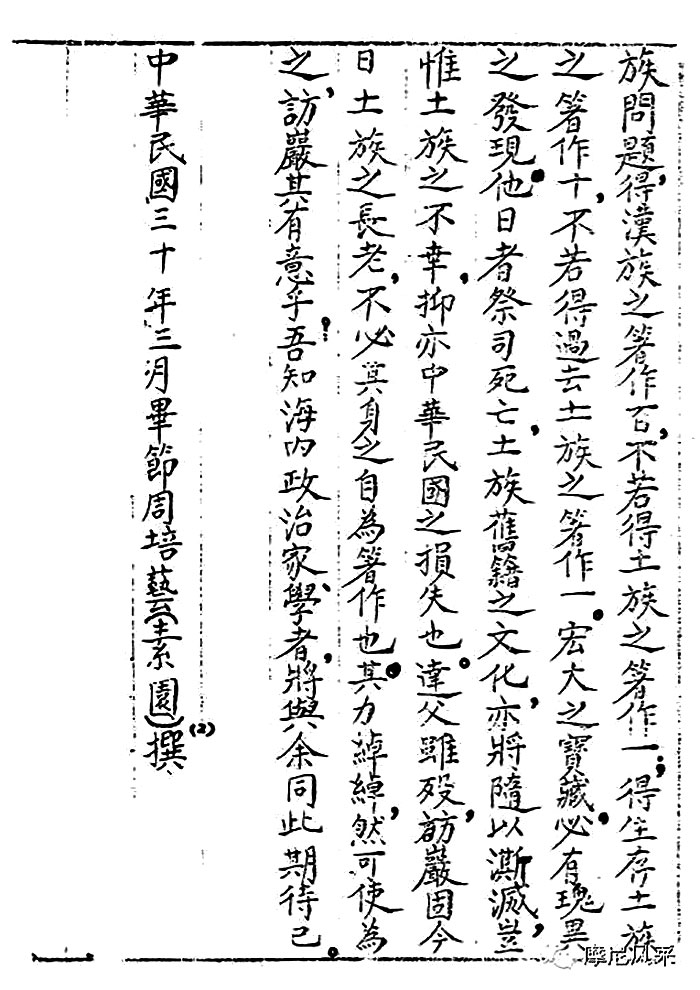 族問題，得漢族之箸作百，不若得土族之箸作一；得生存土族
之箸作十，不若得過去土族之箸作一。宏大之寶藏，必有瑰異
之發現。他日者祭司死亡，土族舊籍之文化，亦將隨以澌滅，豈
惟土族之不幸，抑亦中華民國之損失也。達父雖殁，訪巖固今
日土族之長老，不必其身之自為箸作也。其力綽綽然，可使為
之，訪巖其有意乎！吾知海內政治家、學者，將與余同此期待已。
中華民國三十年三月畢節周培藝（素園）撰
(2)
摩尼风采